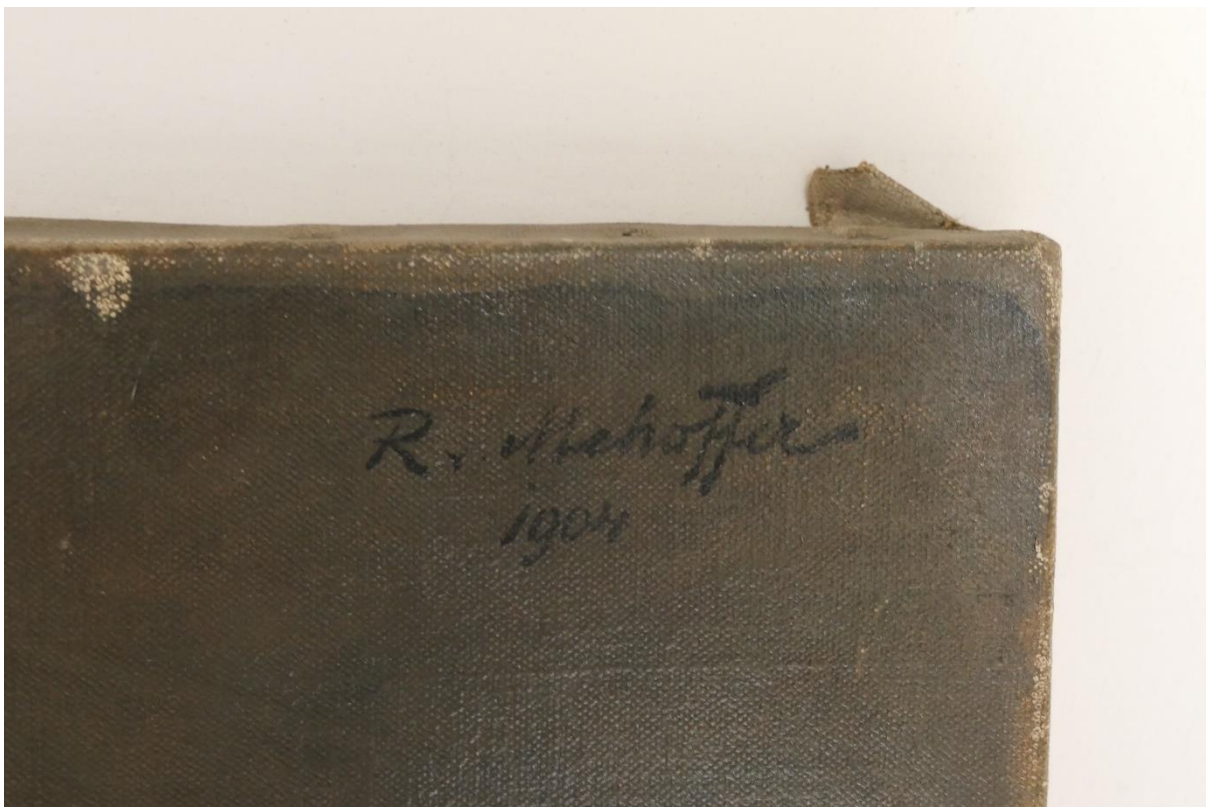 R. Mehoffer
1904